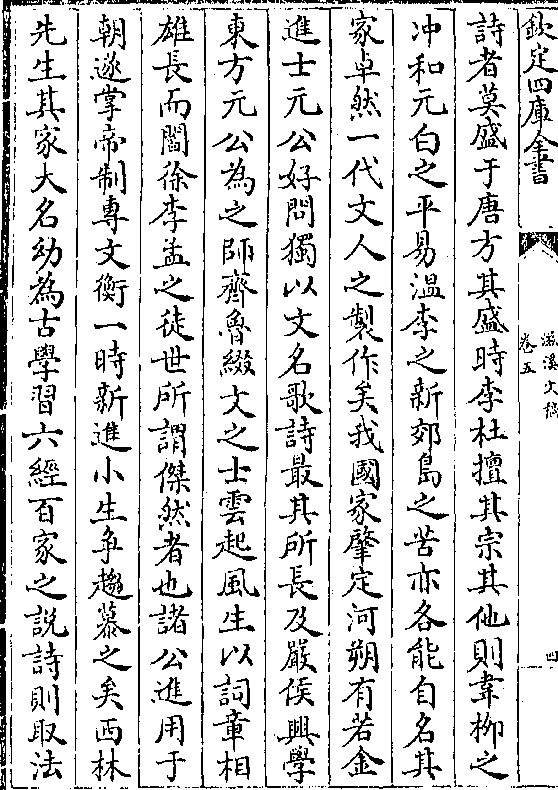 欽定四庫全書
滋溪文稿
卷五
四
詩者莫盛于唐方其盛時李杜擅其宗其他則韋柳之
冲和元白之平易温李之新郊島之苦亦各能自名其
家卓然一代文人之製作矣我國家肇定河朔有若金
進士元公好問獨以文名歌詩最其所長及嚴侯興學
東方元公為之師齊魯綴文之士雲起風生以詞章相
雄長而閻徐李孟之徒世所謂傑然者也諸公進用于
朝遂掌帝制專文衡一時新進小生争趨慕之矣西林
先生其家大名幼為古學習六經百家之説詩則取法